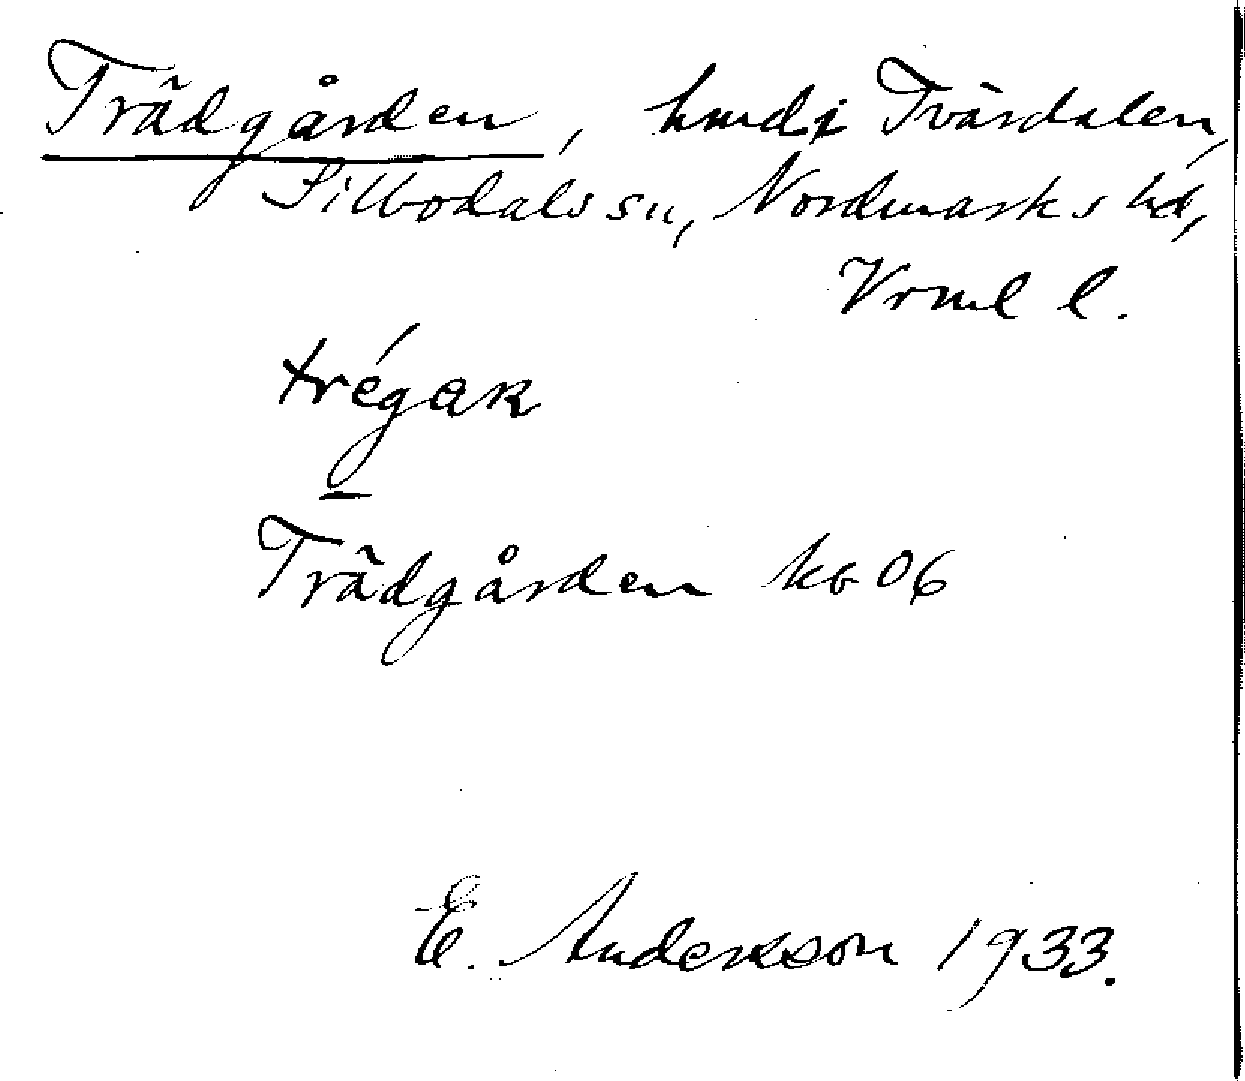 Trädgården, hmd i Tvärdalen,
Silbodals sn, Nordmarks hd,
Vrml l.
trégaʀ
Trädgården kb 06
E. Andersson 1933.